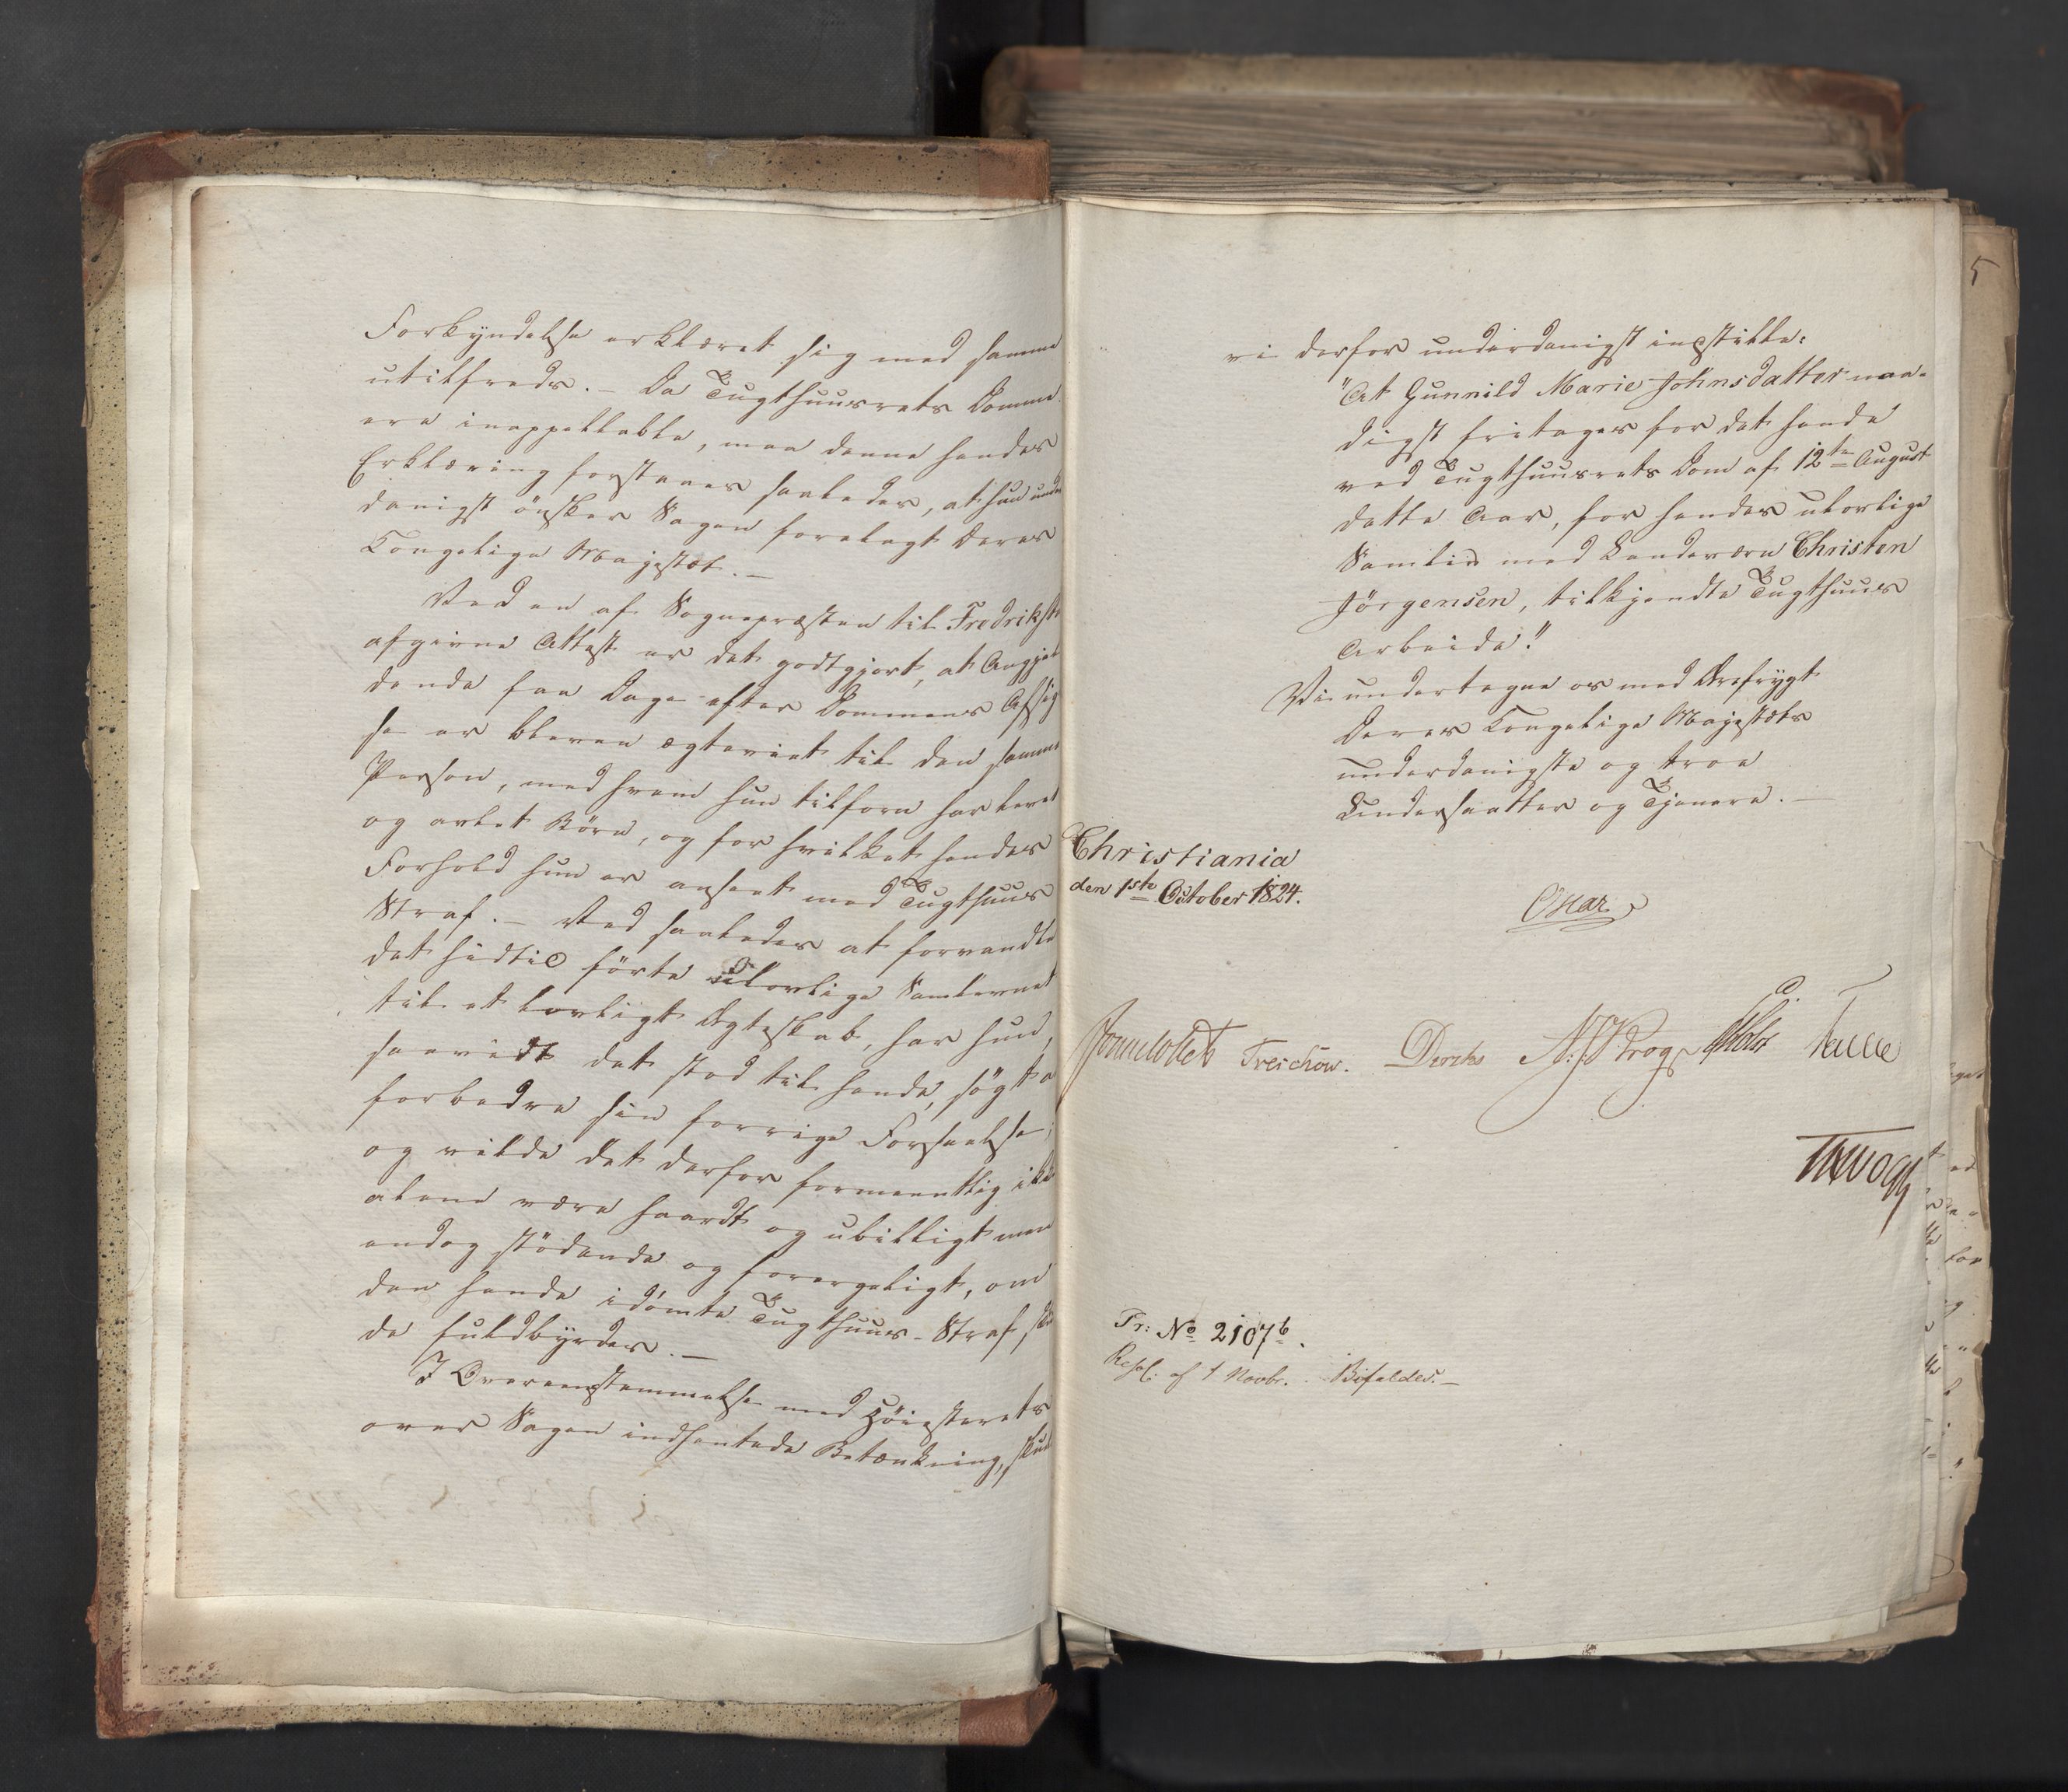 Forkyndelse erklæret sig med samme
utilfreds. – Da Tugthuusrets Domme
ere inappellable, maa denne hendes
Erklæring forstaaes saaledes, at hun under
danigst ønsker Sagen forelagt Deres
Kongelige Majestæt. –
Ved en af Sognepræsten til Fredrikst
afgiven Attest er det godtgjort, at Angjel
dende faa Dage efter Dommens Afsig
se er bleven ægteviet til den samme
Person, med hvem hun tilforn har levet
og avlet Börn, og for hvilket hendes
Forhold hun er anseet med Tugthuus
Straf. – Ved saaledes at forvandle
det hidtil förte ulovlige Samlevnet
til et lovligt Ægteskab, har hun,
saavidt det stod til hende, sögt a
forbedre sin forrige Forseelse;
og vilde det derfor formeentlig ikke
alene være haardt og ubilligt men
endog stödende og forargeligt, om
den hende idömte Tugthuus-Straf skul
de fuldbyrdes. –
I Overeensstemmelse med Höiesterets
over Sagen indhentede Betænkning, skulle
5
vi derfor underdanigst indstille:
"At Gunnild Marie Johnsdatter naa-
digst fritages for det hende
ved Tugthuusrets Dom af 12te August
dette Aar, for hendes ulovlige
Samliv med Landeværn Christen
Jörgensen, tilkjendte Tugthuus
Arbeide."
Vi undertegne os med Ærefrygt
Deres Kongelige Majestæts
underdanigste og troe
Undersaatter og Tjenere. –
Christiania
den 1ste October 1824.
Oscar
Sommerfelt Treschow. Diriks N: J Krog Holst Falbe
Th Vogt
Fr: No 2107b.
Resol: af 1 Novbr. Bifaldes. –